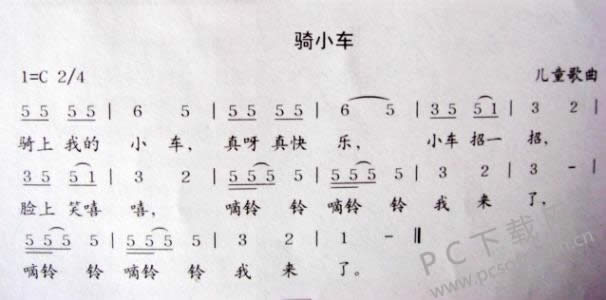 骑小车
1=C 2/4 儿童歌曲
5 5 5 5 | 6 5 | 5 5 5 5 | 6 5 | 3 5 5 1 | 3 2 |
骑上 我的 小 车, 真呀 真快 乐, 小车 招一 招,
3 5 5 1 | 3 2 | 5 5 5 5 | 5 5 5 5 | 3 2 | 3 - |
脸上 笑嘻 嘻, 嘀铃 铃 嘀铃 铃 我 来 了,
5 5 5 5 | 5 5 5 5 | 3 2 | 1 - ||
嘀铃 铃 嘀铃 铃 我 来 了。
PC下载网